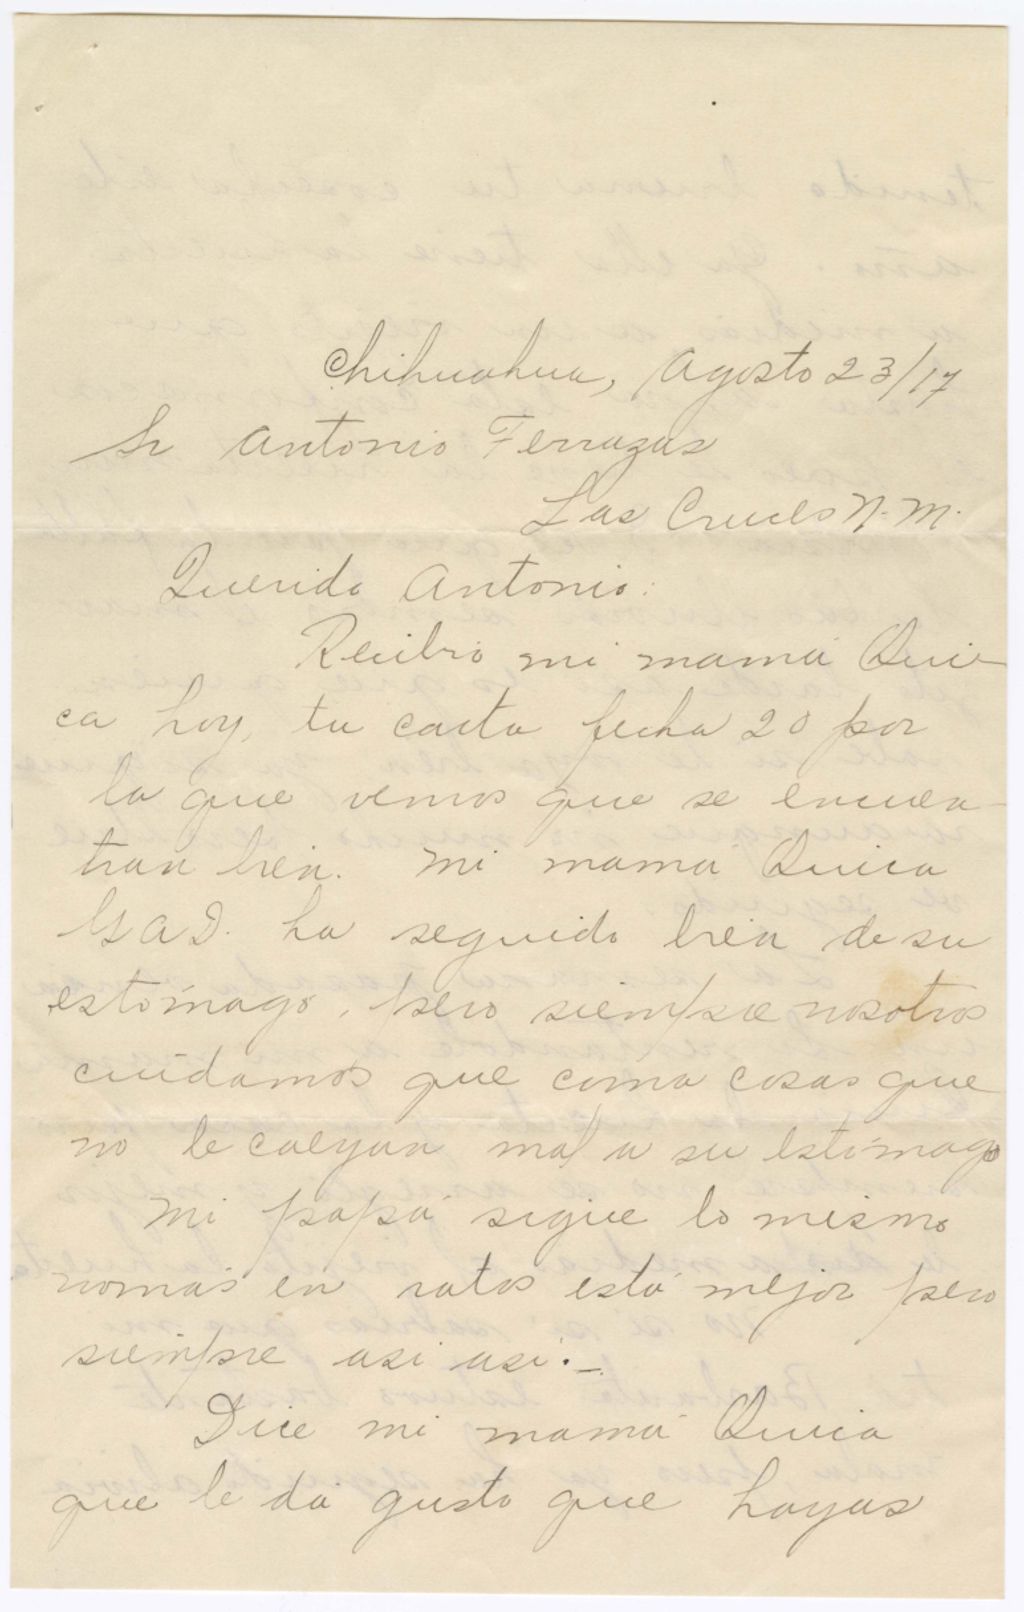 Chihuahua, Agosto 23/17
Sr Antonio Terrazas
Las Cruces N. M.
Querido Antonio:
Recibió mi mamá Qui-
ca hoy, tu carta fecha 20 por
la que vemos que se encuen-
tran bien. Mi mamá Quica
G A D. ha seguido bien de su
estómago, pero siempre nosotros
cuidamos que coma cosas que
no le caigan mal a su estómago
Mi papá sigue lo mismo
nomás en ratos está mejor pero
siempre asi asi.-
Dice mi mamá Quica
que le dá gusto que hayas